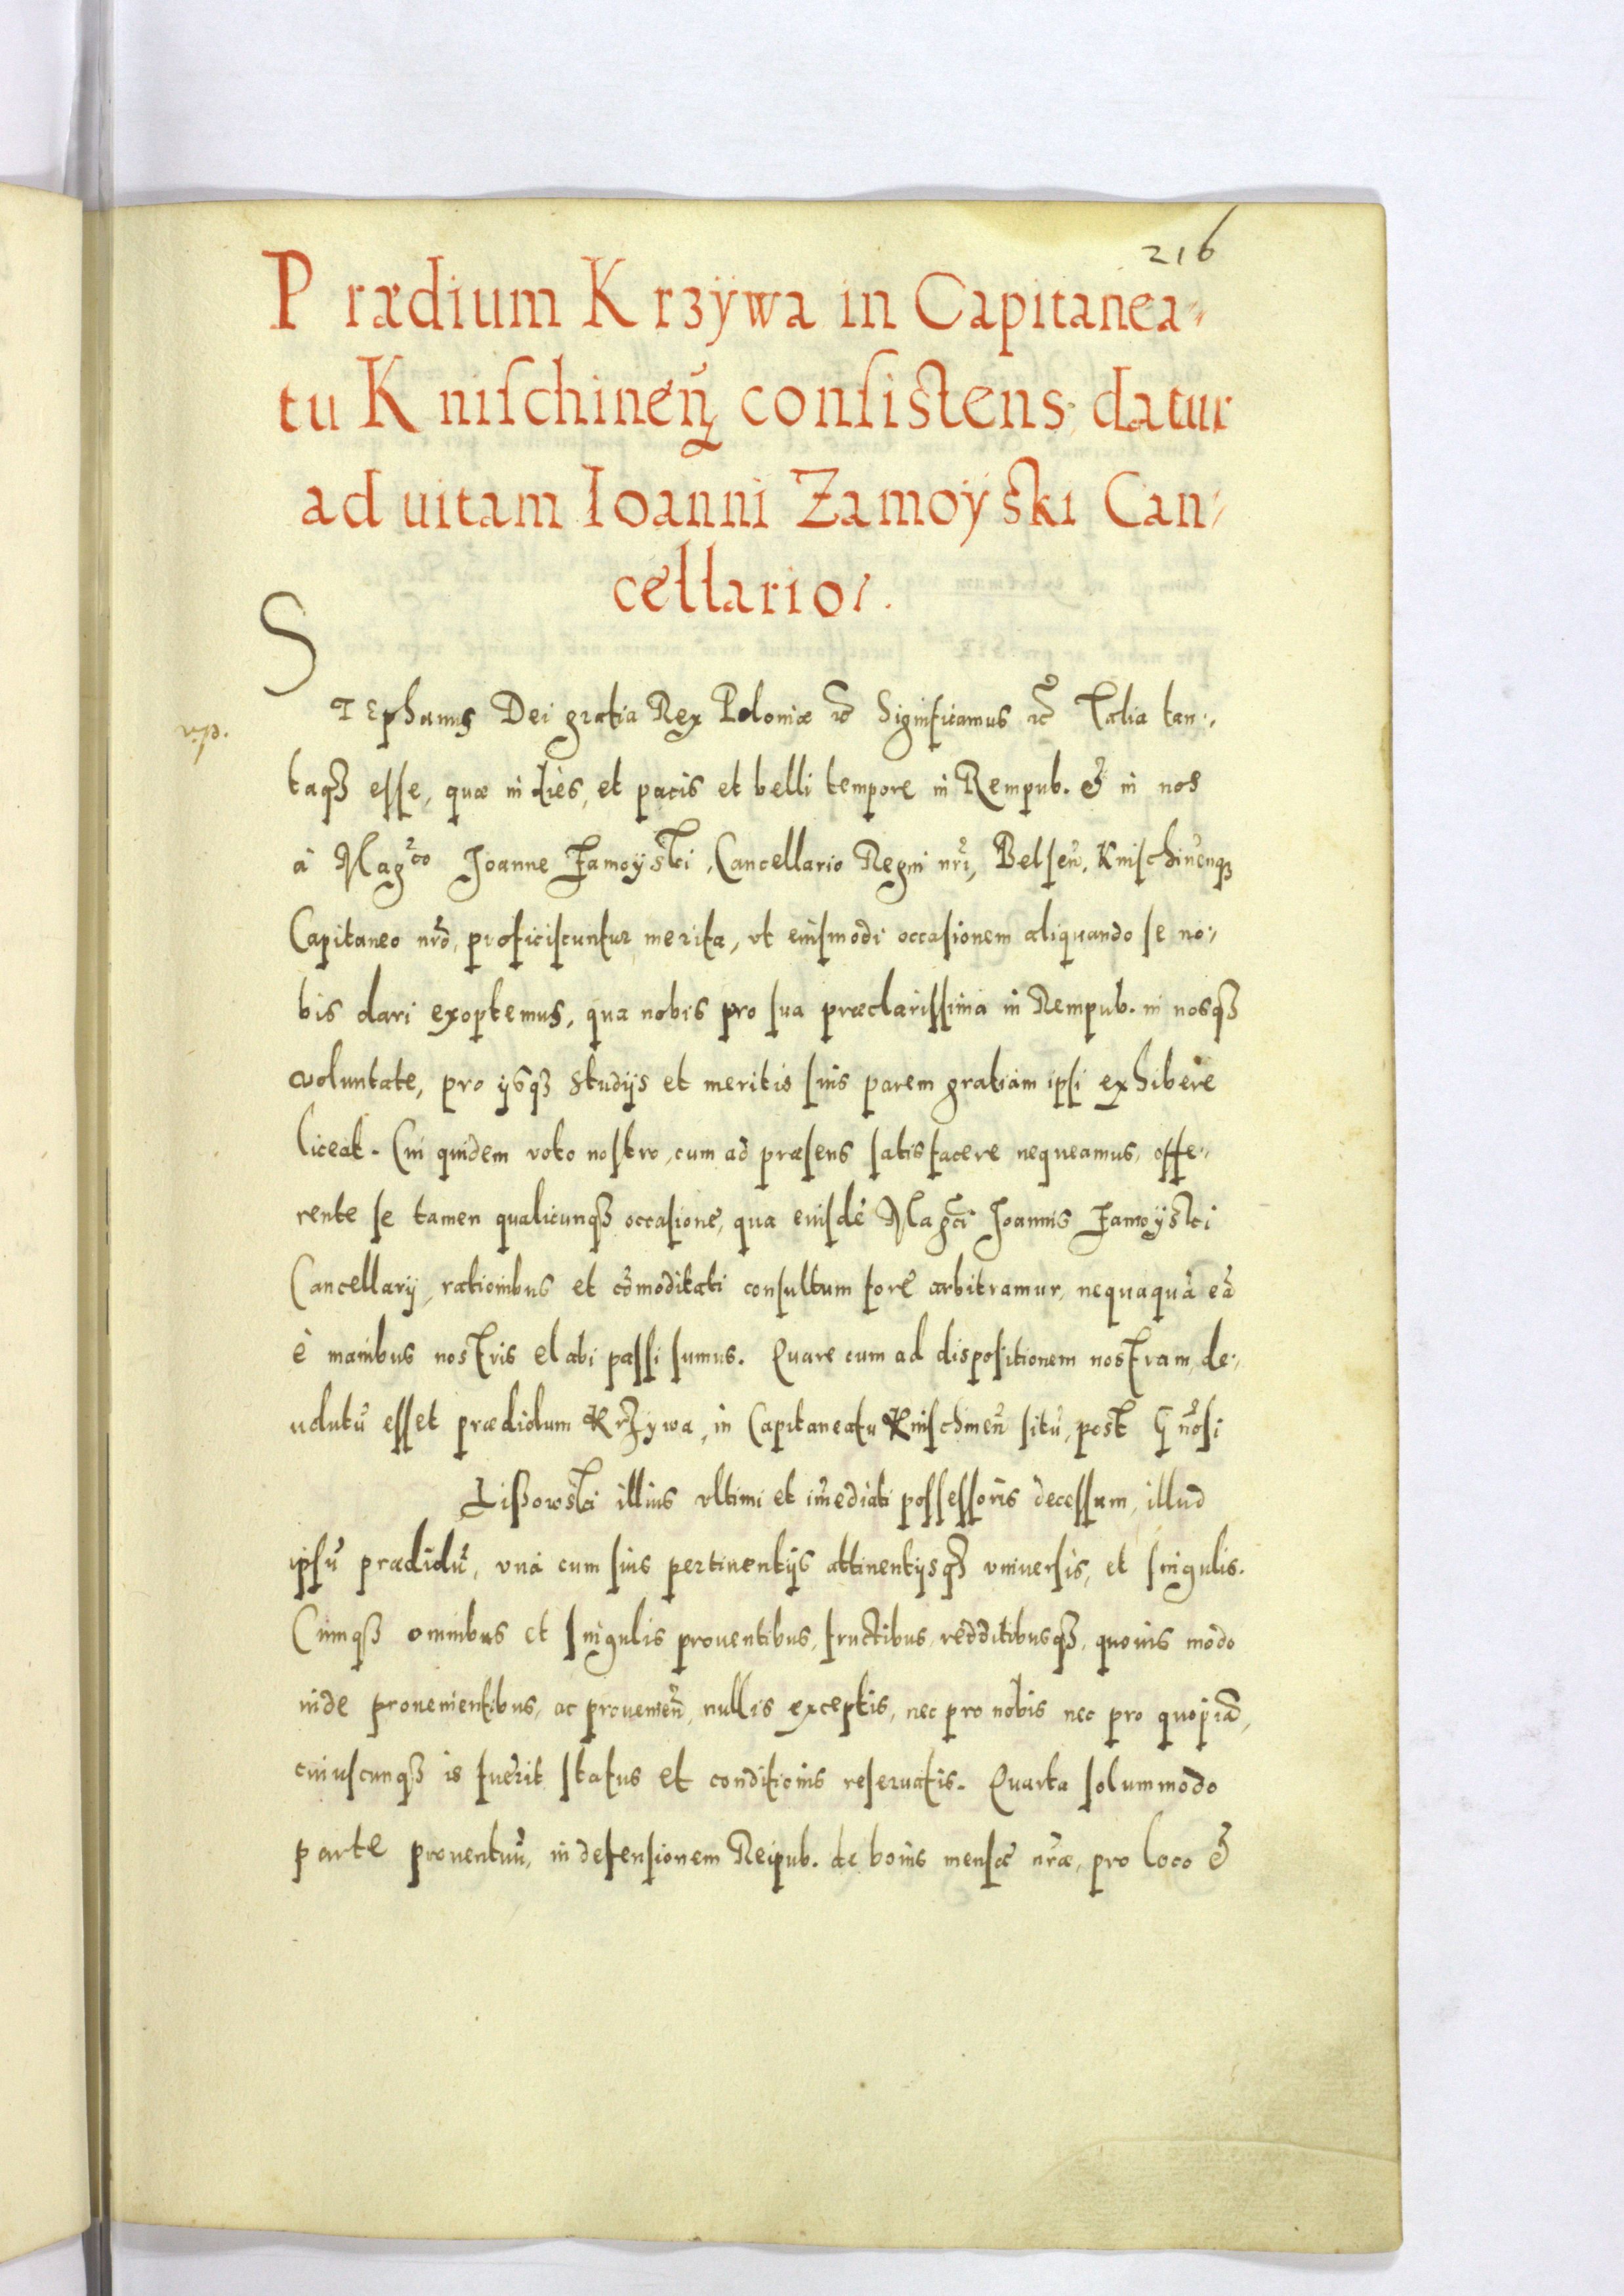 216
Prædium Krzÿwa in Capitanea-
tu Knischineñ consistens datur
ad uitam Ioanni Zamoÿski Can-
cellario.
STEphanus Dei gratia Rex Poloniæ etc̃ Significamus etc̃ Talia tan-
taqȝ esse, quæ in dies, et pacis et belli tempore in Rempub. & in nos
à Mag^co Joanne Zamoÿski, Cancellario Regni nr̃i, Belseñ, Knischinenqȝ
Capitaneo nr̃o, proficiscuntur merita, vt eiusmodi occasionem aliquando se no-
bis dari exoptemus, qua nobis pro sua præclarissima in Rempub. in nosqȝ
voluntate, pro ijsqȝ studijs et meritis suis parem gratiam ipsi exhibere
liceat. Cui quidem voto nostro, cum ad præsens satisfacere nequeamus, offe-
rente se tamen qualicunqȝ occasione, qua eiusdẽ Mag̃ci Joannis Zamoÿski
Cancellarij, rationibus et cõmoditati consultum fore arbitramur, nequaquã eã
è manibus nostris elabi passi sumus. Quare cum ad dispositionem nostram, de-
uolutũ esset prædiolum Krzywa, in Capitaneatu Knischineñ sitũ, post Gñosi
Lißowski illius vltimi et im̃ediati possessoris decessum, illud
ipsũ prædiolũ, vnà cum suis pertinentijs attinentijsqȝ vniuersis, et singulis.
Cumqȝ omnibus et singulis prouentibus, fructibus, redditibusqȝ, quouis modo
inde prouenientibus, ac prouenieñ, nullis exceptis, nec pro nobis nec pro quopiã,
cuiuscunqȝ is fuerit status et conditionis reseruatis. Quarta solummodo
parte prouentuũ, in defensionem Reipub. de bonis mensæ nr̃æ, pro loco &